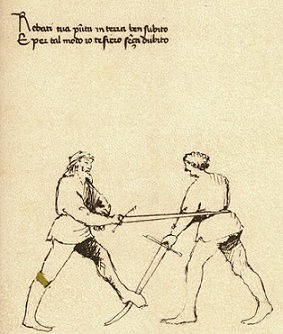 Rebati tua pũta in terra ben subito
E per tal modo io te fiero sença dubito